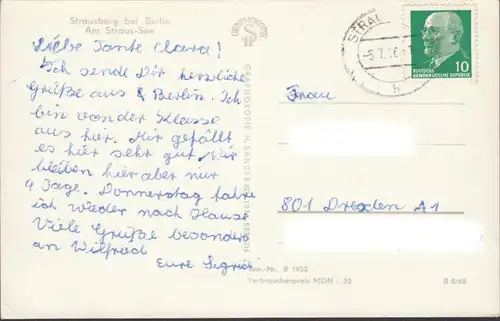 Strausberg bei Berlin
Am Straus-See
Liebe Tante Clara!
Ich sende Dir herzliche
Grüße aus Berlin. Ich
bin von der Klasse
aus hier. Mir gefällt
es hier sehr gut. Wir
bleiben hier aber nur
9 Tage. Donnerstag fahre
ich wieder nach Hause
Viele Grüße besonders
an Wilfred
Eure
STRAU
-5.7.
h
10
DEUTSCHE
DEMOKRATISCHE REPUBLIK
Frau
801 Dresden A1
B 1952
Verbraucherpreis MDN -,25
B 8/65